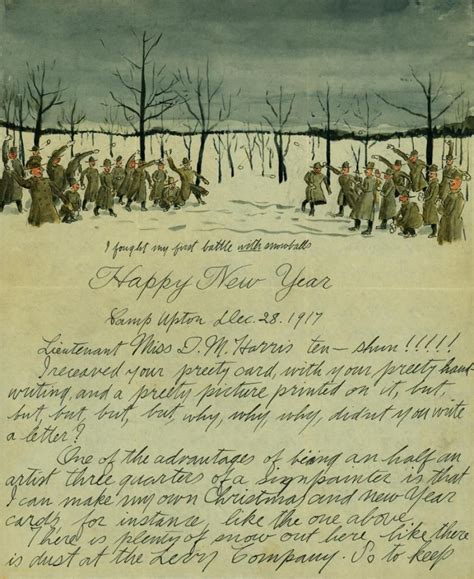 I fought my first battle with snowballs
Happy New Year
Camp Upton Dec. 28. 1917
Lieutenant Miss D. M. Harris ten-shun!!!!!
I receaved your preety card, with your preety hand
writing, and a preety picture printed on it, but,
but, but, but, but why, why, why, didn't you write
a letter?
One of the advantages of being an half an
artist three quarters of a signpainter is that
I can make my own Christmas and new Year
cards, for instance, like the one above.
There is plenty of snow out here, like there
is dust at the Levy Company. So to keep